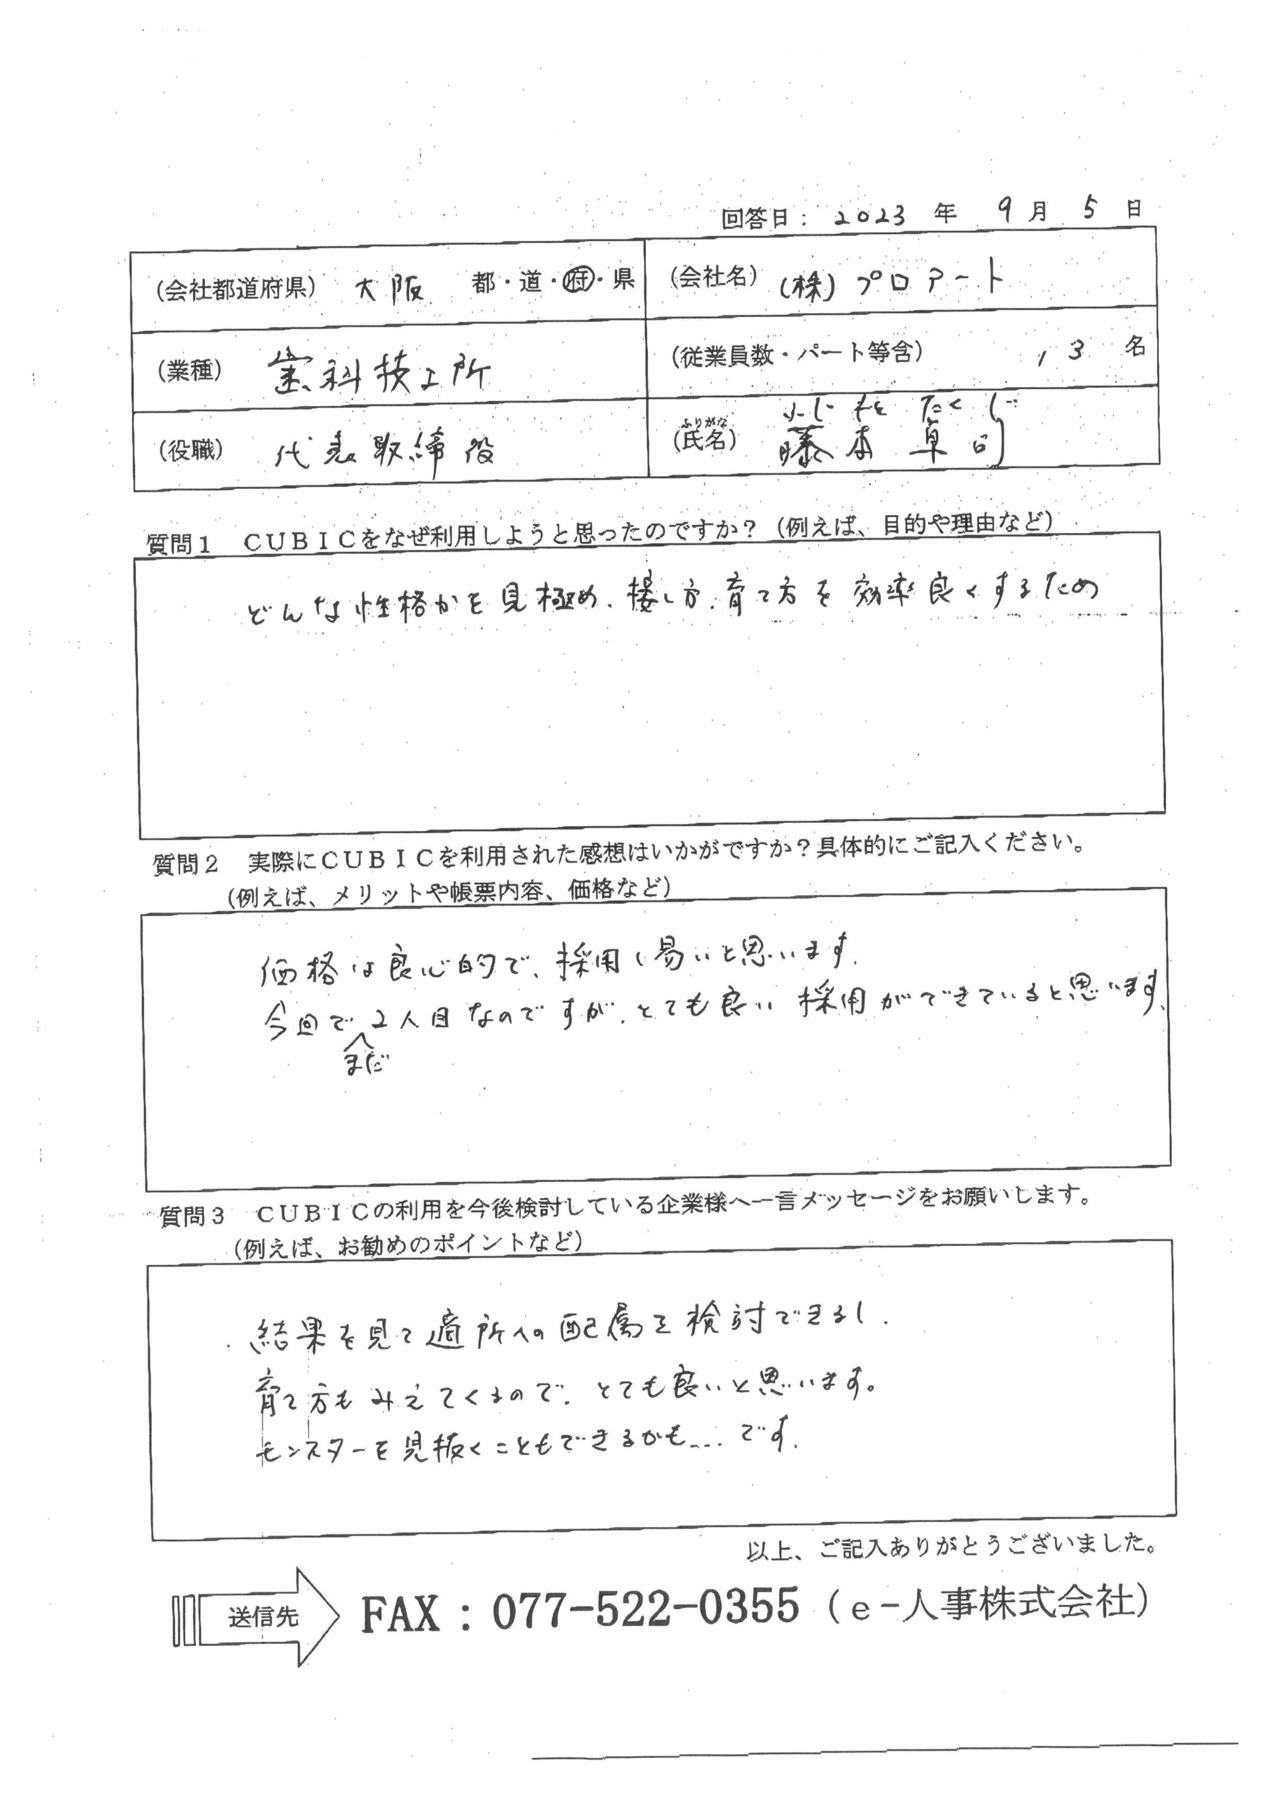 回答日： 2023 年 9 月 5 日
（会社都道府県） 大阪 都・道・府・県 （会社名） （株）プロアート
（業種） 歯科技工所 （従業員数・パート等含） 13 名
（役職） 代表取締役 （氏名） ふりがな ふじもと たくじ 藤本 卓司
質問1 ＣＵＢＩＣをなぜ利用しようと思ったのですか？（例えば、目的や理由など）
どんな性格かを見極め、接し方、育て方を効率良くするため
質問2 実際にＣＵＢＩＣを利用された感想はいかがですか？具体的にご記入ください。
（例えば、メリットや帳票内容、価格など）
価格は良心的で、採用し易いと思います。
今回でまだ2人目なのですが、とても良い採用ができていると思います。
質問3 ＣＵＢＩＣの利用を今後検討している企業様へ一言メッセージをお願いします。
（例えば、お勧めのポイントなど）
結果を見て適所への配属を検討できるし、
育て方もみえてくるので、とても良いと思います。
モンスターを見抜くこともできるかも...です。
以上、ご記入ありがとうございました。
送信先 FAX：077-522-0355（e-人事株式会社）